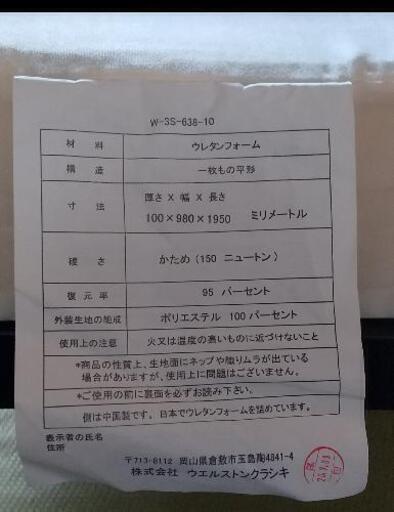 W-3S-638-10
材料 ウレタンフォーム
構造 一枚もの平形
寸法 厚さ X 幅 X 長さ
100×980×1950 ミリメートル
硬さ かため(150 ニュートン)
復元率 95 パーセント
外装生地の組成 ポリエステル 100パーセント
使用上の注意 火又は温度の高いものに近づけないこと
*商品の性質上、生地面にネップや織りムラが出ている
場合がありますが、使用上に問題はございません。
*ご使用の前に裏面を必ずお読み下さい。
側は中国製です。日本でウレタンフォームを詰めています。
表示者の氏名
住所
〒713-8112 岡山県倉敷市玉島陶4841-4
株式会社 ウエルストンクラシキ